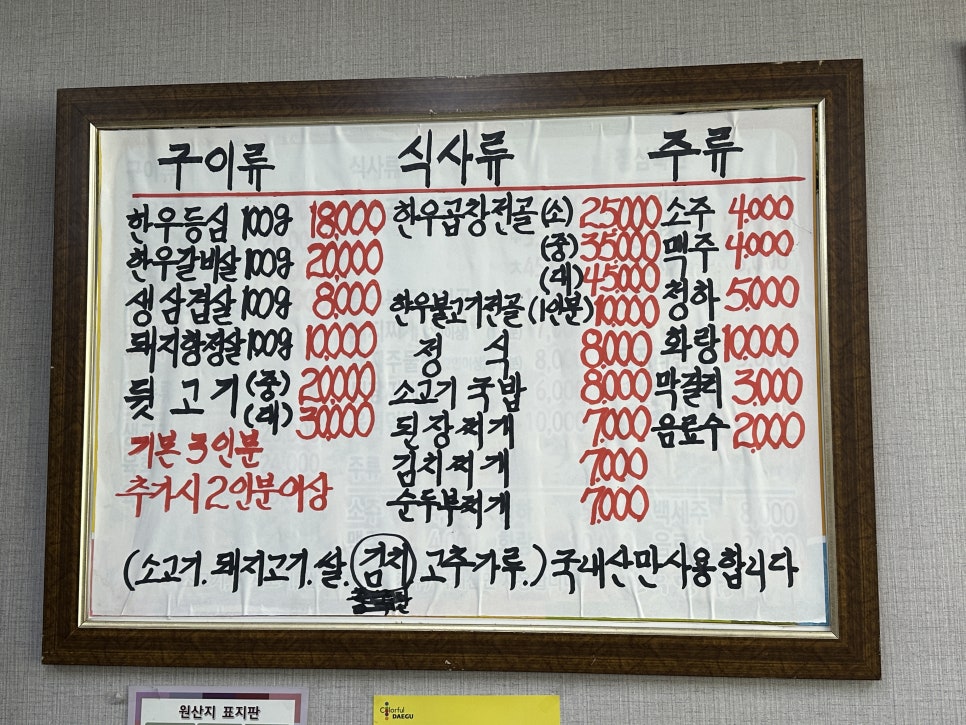 구이류
한우등심 100g 18,000
한우갈비살 100g 20,000
생삼겹살 100g 8,000
돼지항정살 100g 10,000
뒷고기 (중) 20,000
(대) 30,000
기본 3인분
추가시 2인분이상
식사류
한우곱창전골 (소) 25,000
(중) 35,000
(대) 45,000
한우불고기전골 (1인분) 10,000
정식 8,000
소고기국밥 8,000
된장찌개 7,000
김치찌개 7,000
순두부찌개 7,000
주류
소주 4,000
맥주 4,000
청하 5,000
화랑 10,000
막걸리 3,000
음료수 2,000
(소고기.돼지고기.쌀.김치 고추가루.) 국내산만사용합니다
원산지 표지판
Colorful
DAEGU